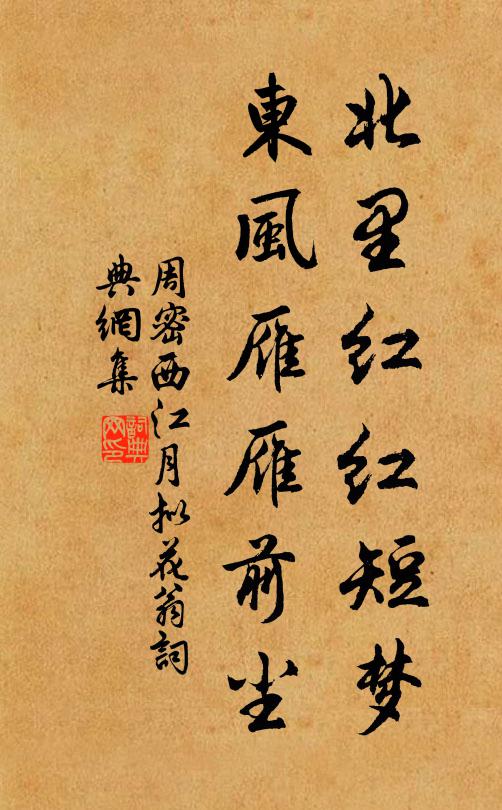 北里红红短梦
東風雁雁前尘
周密西江月拟花翁詞
典網集
詞典網印